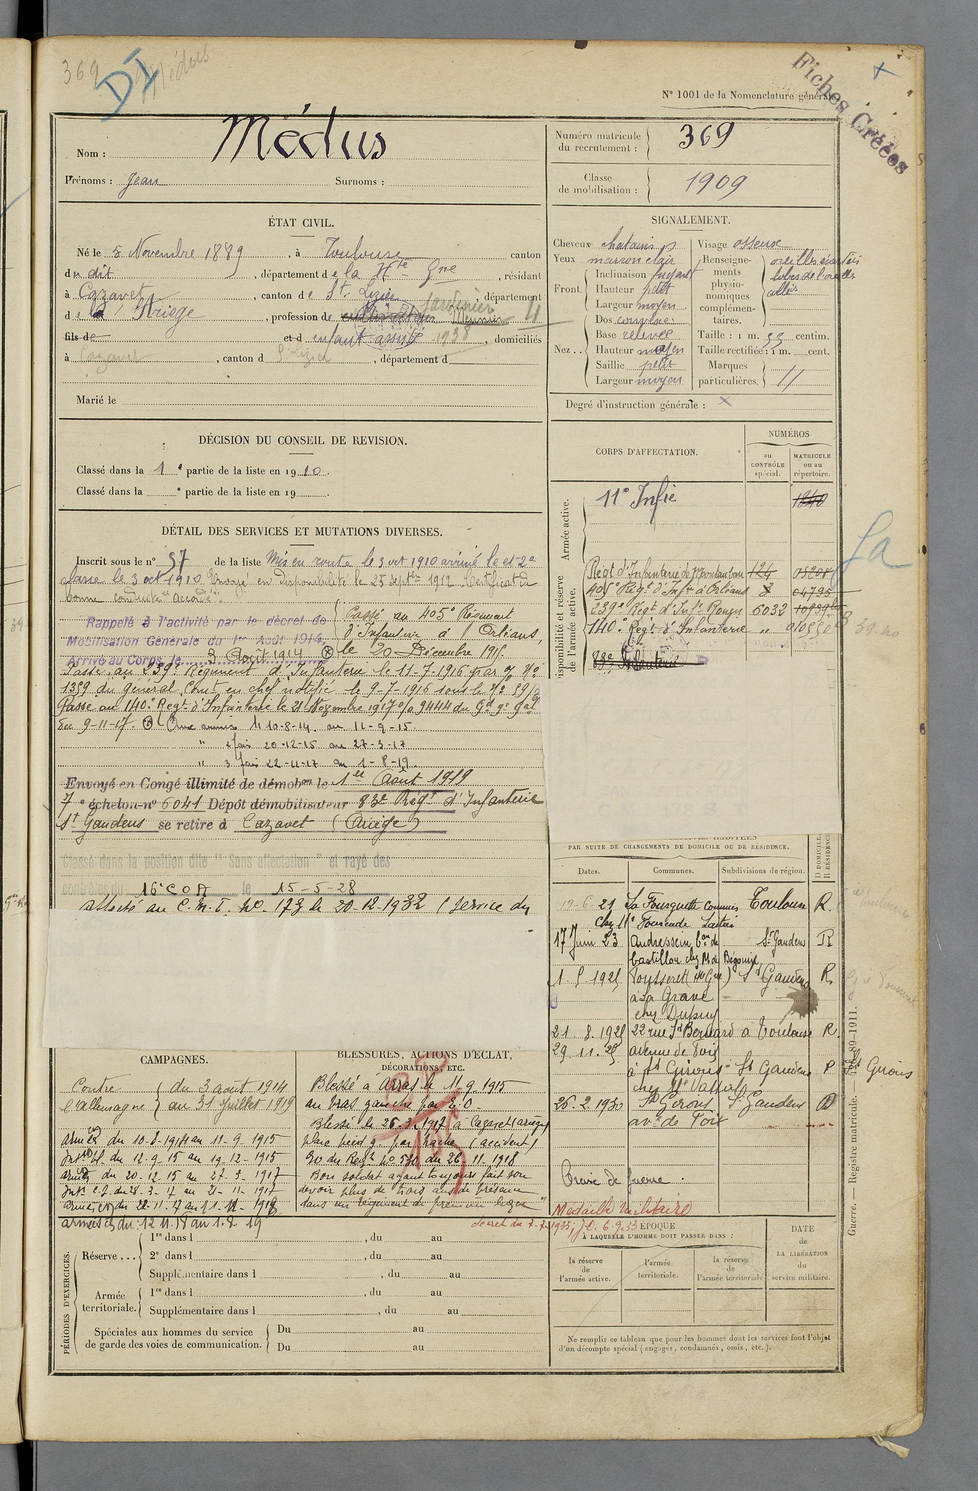 369
DI
Médus
Fiches Créées
N° 1001 de la Nomenclature générale
Nom : Médus
Prénoms : Jean Surnoms :
Numéro matricule du recrutement : 369
Classe de mobilisation : 1909
ÉTAT CIVIL.
Né le 5 Novembre 1889, à Toulouse canton
du dit, département de la Hte Gne, résidant
à Cazavet, canton de St Lizier, département
de l'Ariège, profession de
Jardinier 4
fils de et d enfant assisté 1938, domiciliés
à Cazavet, canton d St Lizier, département d
Marié le
SIGNALEMENT.
Cheveux chatains
Yeux marron clair
Front. Inclinaison fuyant
Hauteur petit
Largeur moyen
Nez. Dos
Base relevée
Hauteur moyen
Saillie petit
Largeur moyen
Visage osseux
Renseignements physionomiques complémentaires.
oreilles écartées
lobes de l'oreille
collés
Taille : 1 m. 55 centim.
Taille rectifiée : 1 m. cent.
Marques particulières. //
Degré d'instruction générale : x
DÉCISION DU CONSEIL DE REVISION.
Classé dans la 1e partie de la liste en 1910.
Classé dans la e partie de la liste en 19
DÉTAIL DES SERVICES ET MUTATIONS DIVERSES.
Inscrit sous le n° 57 de la liste Mis en route le 3 oct 1910 arrivé le et 2e
classe le 3 oct 1910 Envoyé en disponibilité le 25 septbre 1912 Certificat de
bonne conduite "Accordé".
Rappelé à l'activité par le décret de
Mobilisation Générale du 1er Août 1914.
Arrivé au Corps le 3 Août 1914
Passé au 405e Régiment
d'Infanterie à Orléans,
le 20 Décembre 1915
Passé au 239e Régiment d'Infanterie le 11-7-1916 par % No
1359 du Général Comt en chef notifié le 9-7-1916 sous le No
Passé au 140e Regt d'Infanterie le 21 Novembre 1917 o/ 9444 du Gd Qr Gal
du 9-11-17. Aux armées 1) 10-8-14 au 11-9-15
" 2 fois 20-12-15 au 27-3-17
" 3 fois 22-11-17 au 1-8-19
Envoyé en Congé illimité de démobon le 1er Août 1919
7e échelon n° 6041 Dépôt démobilisateur 83e Régt d'Infanterie
St Gaudens se retire à Cazavet (Ariège)
Classé dans la position dite "Sans affectation" et rayé des
contrôles du 16e COA le 15-5-28
affecté au C.M.I. No 173 le 20-12-1932 (Service du
CORPS D'AFFECTATION.
NUMÉROS
au CONTRÔLE spécial.
MATRICULE ou au répertoire.
Armée active.
11e Infie 1840
Disponibilité et réserve de l'armée active.
Regt d'Infanterie de Montauban 124
405e Regt d'Infie d'Orléans 04795
239e Regt d'Infie 6032
140e Regt d'Infanterie " 010550
83e Infanterie
La
PAR SUITE DE CHANGEMENTS DE DOMICILE OU DE RÉSIDENCE.
Dates. Communes. Subdivisions de région. D DOMICILE R RÉSIDENCE
19-6-21 La Fourguette Commune Toulouse R.
17 Juin 23 Audressein, St Gaudens R
Castillon chez M de Bégouen
1-5 1925 (Hte Gne) St Gaudens R.
à La Grave
chez Dupuy
21.8.1928 22 rue St Bernard à Toulouse R.
29.11.28 avenue de Foix
à St Girons St Gaudens
chez Mr
26.2.1930 St Girons St Gaudens D
ave de Foix
St Girons
Guerre. Registre matricule.
CAMPAGNES.
Contre l'allemagne (du 3 août 1914
(au 31 Juillet 1919
armées du 10-8-1914 au 11-9-1915
Intr du 12-9-15 au 19-12-1915
armées du 20-12-15 au 27-3-1917
Intr du 28-3-17 au 21-11-1917
armées du 22-11-17 au 11-11-1918
armées du 12-11-18 au 1-8-19
BLESSURES, ACTIONS D'ÉCLAT, DÉCORATIONS, ETC.
Blessé à Arras le 11.9.1915
au bras gauche par E.O.
Blessé le 26-3-1917 à Cazavet (ariège)
plaie pied g. par hache (accident)
O du Regt No 534 du 26-11-1918
Bon soldat ayant toujours fait son
devoir plus de trois ans de présence
dans un régiment de première ligne"
Croix de guerre.
Médaille militaire
Décret du 7-7-1933, J.O. 6-9-33
PÉRIODES D'EXERCICES.
Réserve ... 1re dans l , du au
2e dans l , du au
Supplémentaire dans l , du au
Armée territoriale. 1re dans l , du au
Supplémentaire dans l , du au
Spéciales aux hommes du service de garde des voies de communication. Du au
Du au
ÉPOQUE
À LAQUELLE L'HOMME DOIT PASSER DANS :
la réserve de l'armée active.
l'armée territoriale.
la réserve de l'armée territoriale
DATE de LA LIBÉRATION du service militaire.
Ne remplir ce tableau que pour les hommes dont les services font l'objet
d'un décompte spécial (engagés, condamnés, omis, etc.).